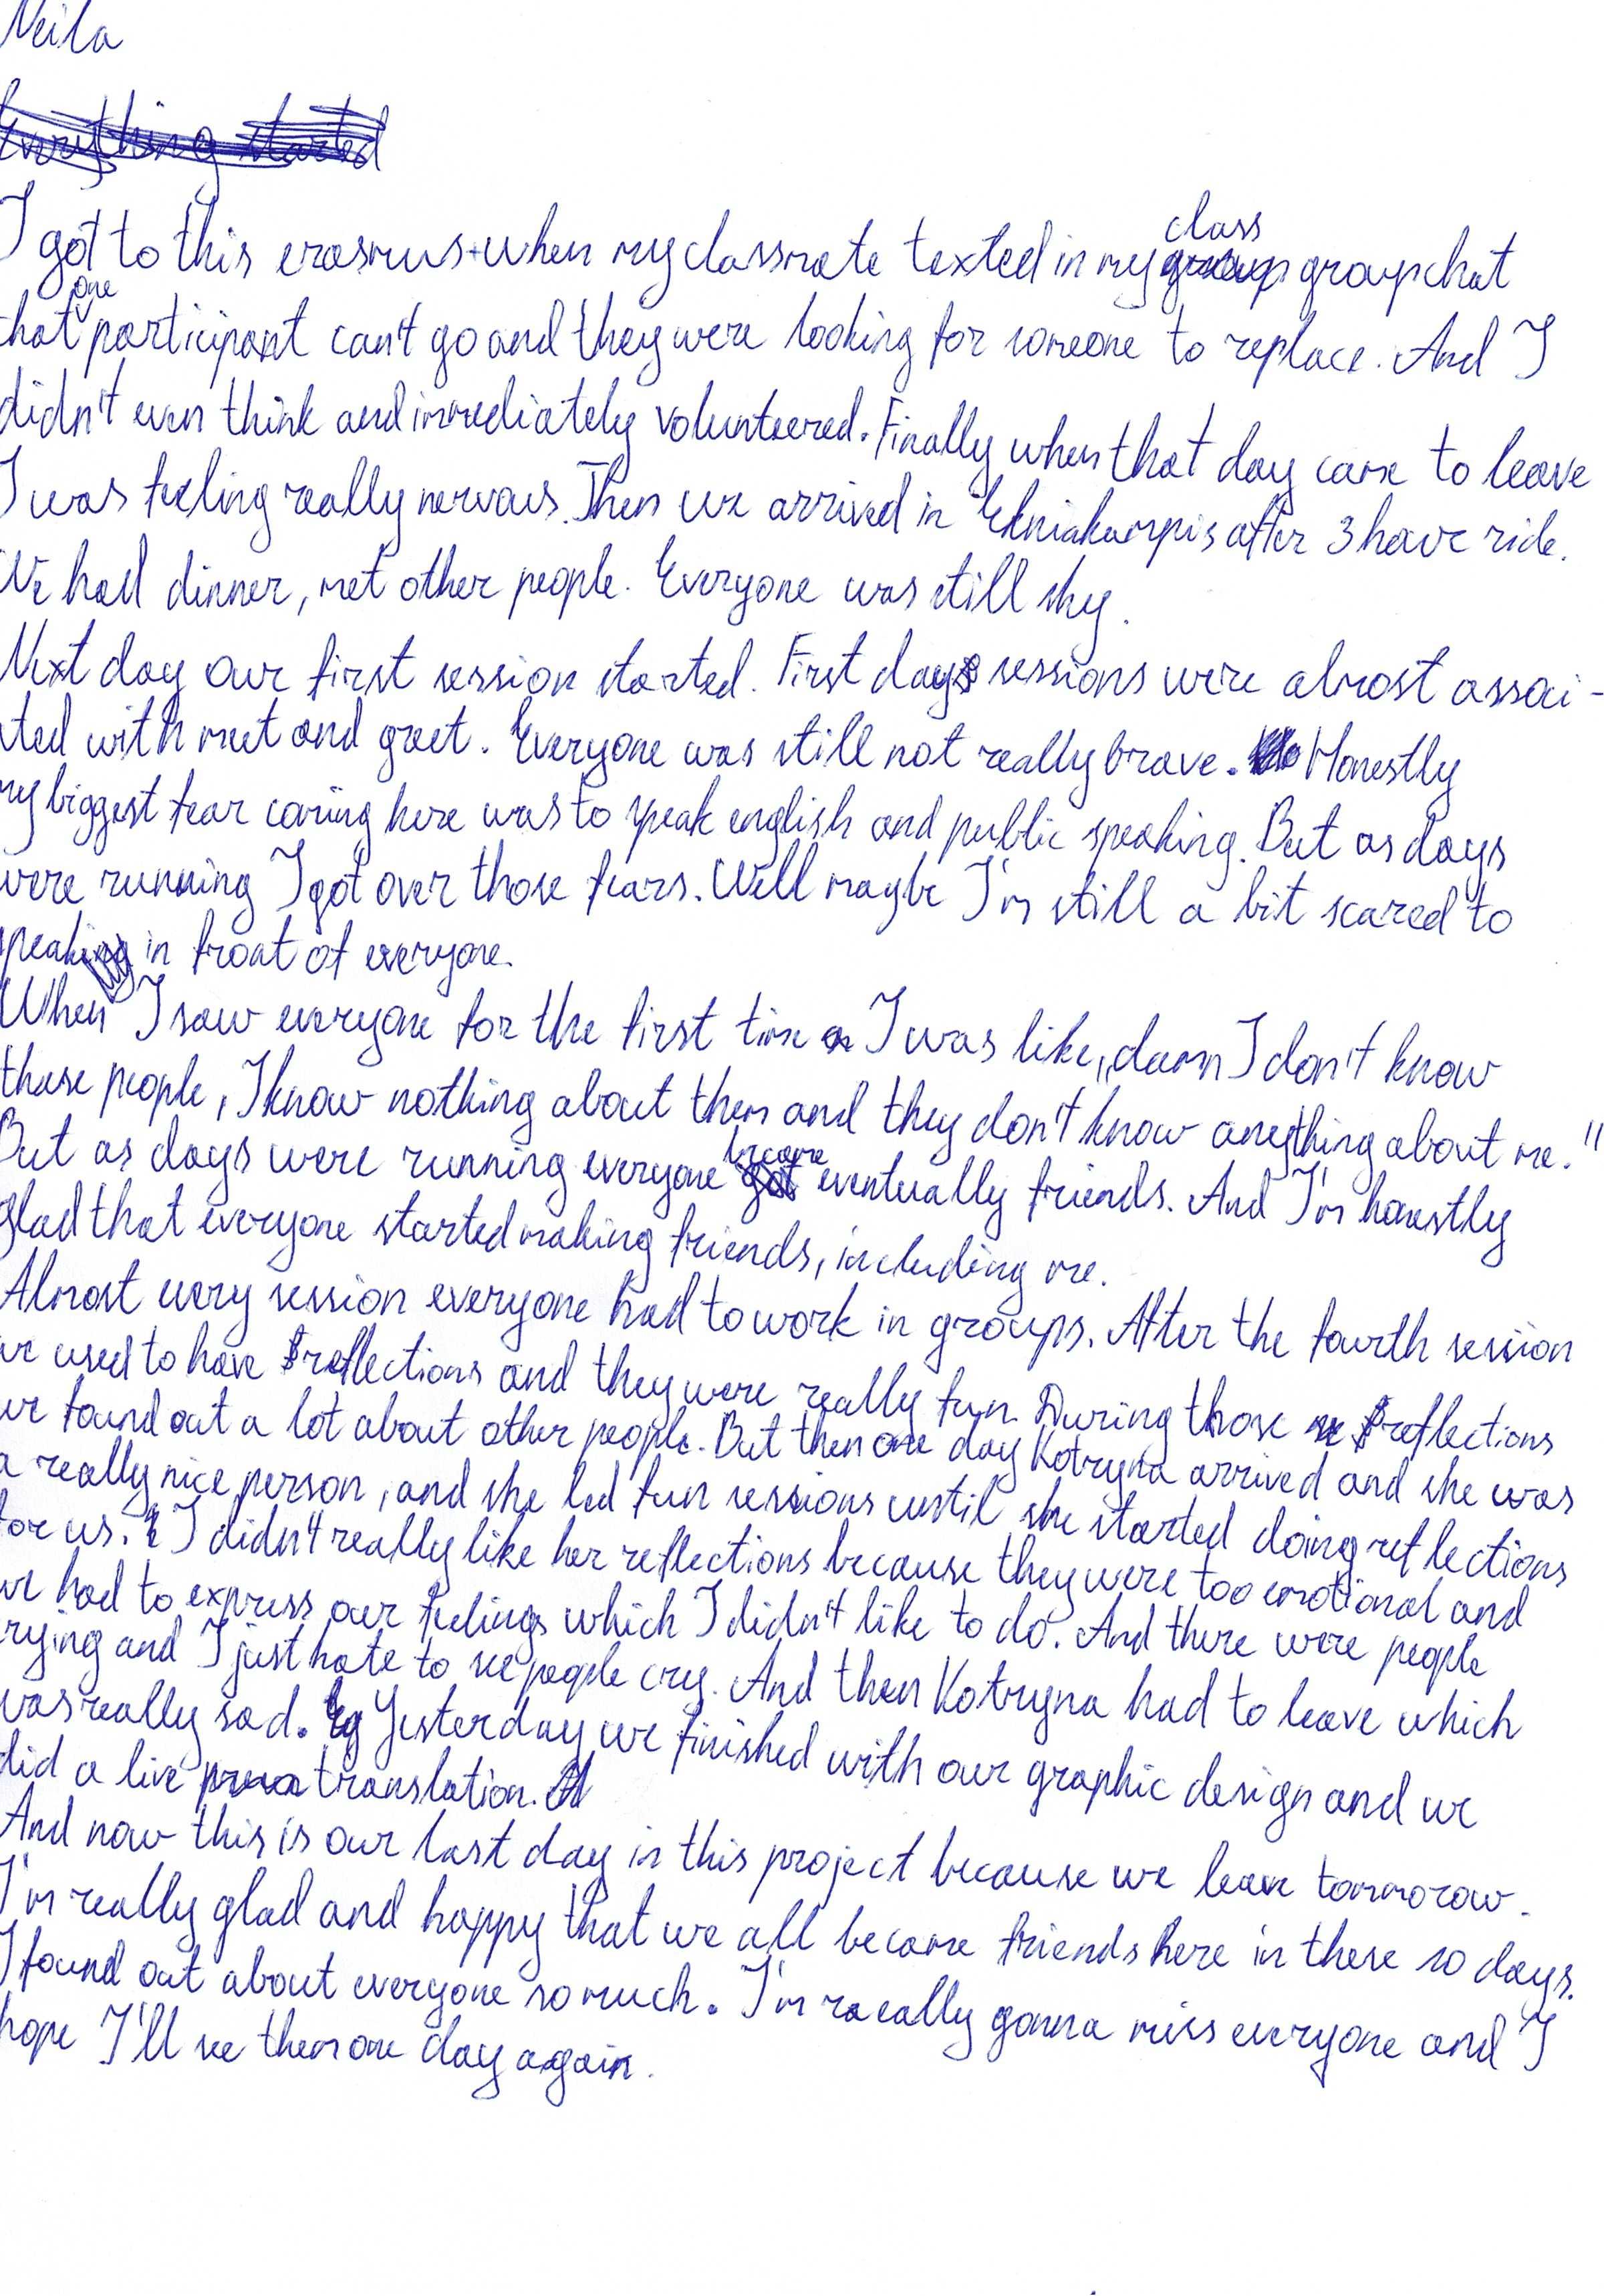 Neila
Everything started
I got to this erasmus+ when my classmate texted in my class groupchat
that one participant can't go and they were looking for someone to replace. And I
didn't even think and immediately volunteered. Finally when that day came to leave
I was feeling really nervous. Then we arrived in after 3 hour ride.
We had dinner, met other people. Everyone was still shy.
Next day our first session started. First day sessions were almost associ-
ated with meet and greet. Everyone was still not really brave. Honestly
my biggest fear coming here was to speak english and public speaking. But as days
were running I got over those fears. Well maybe I'm still a bit scared to
speak in front of everyone.
When I saw everyone for the first time I was like „damn I don't know
these people, I know nothing about them and they don't know anything about me."
But as days were running everyone became eventually friends. And I'm honestly
glad that everyone started making friends, including me.
Almost every session everyone had to work in groups. After the fourth session
we used to have reflections and they were really fun. During those reflections
we found out a lot about other people. But then one day Kotryna arrived and she was
a really nice person, and she led fun sessions until she started doing reflections
for us. I didn't really like her reflections because they were too emotional and
we had to express our feelings which I didn't like to do. And there were people
crying and I just hate to see people cry. And then Kotryna had to leave which
was really sad. Yesterday we finished with our graphic design and we
did a live translation.
And now this is our last day in this project because we leave tommorow.
I'm really glad and happy that we all became friends here in these 10 days.
I found out about everyone so much. I'm really gonna miss everyone and I
hope I'll see them one day again.